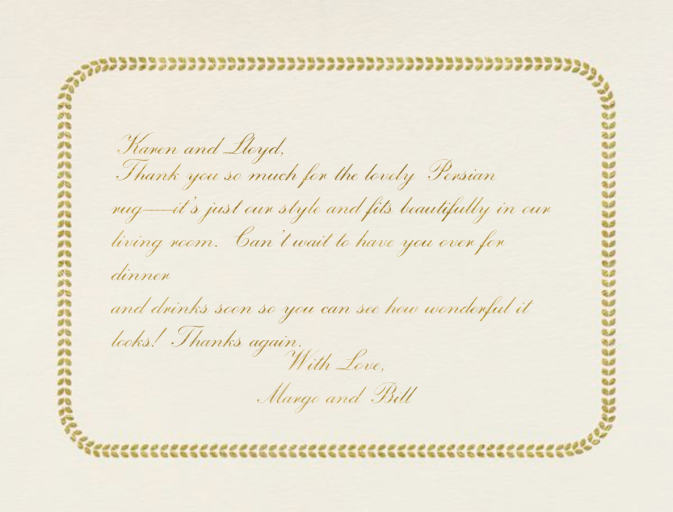 Karen and Lloyd,
Thank you so much for the lovely Persian
rug—it's just our style and fits beautifully in our
living room. Can't wait to have you over for
dinner
and drinks soon so you can see how wonderful it
looks! Thanks again.
With Love,
Margo and Bill